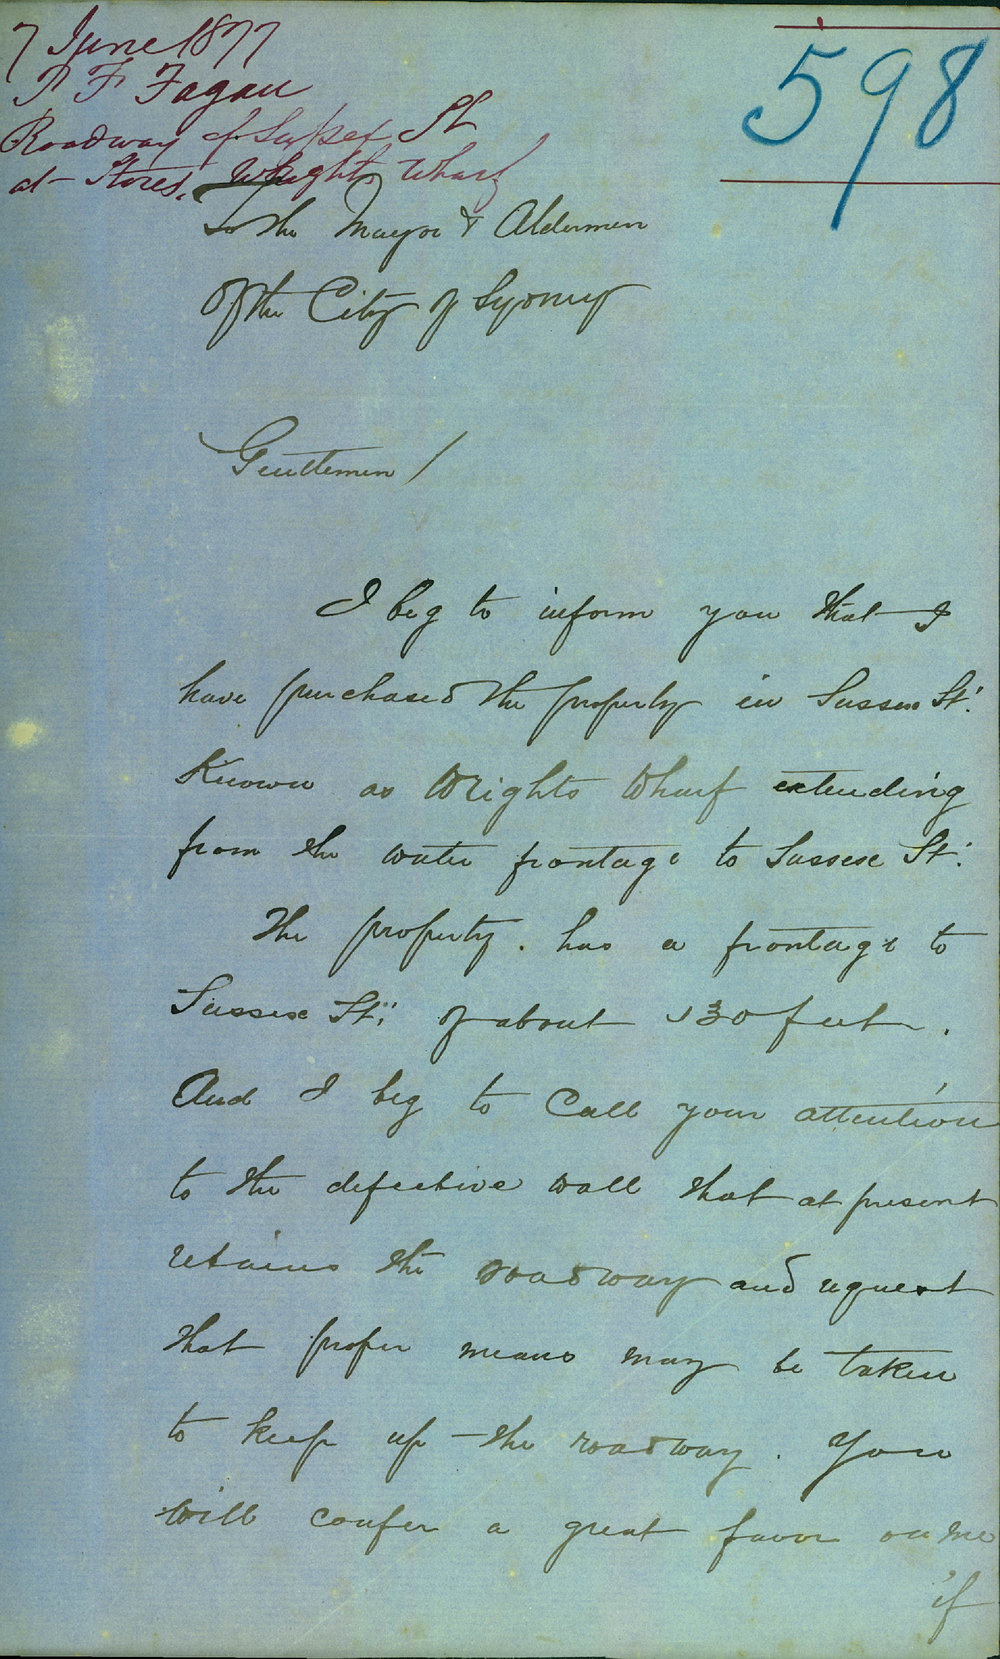 598
7 June 1877
P F Fagan
Roadway of Sussex St
at Stores, Wrights Wharf
To the Mayor & Aldermen
Of the City of Sydney
Gentlemen /
I beg to inform you that I
have purchased the property in Sussex St.
Known as Wrights Wharf extending
from the water frontage to Sussex St.
The property . has a frontage to
Sussex St. of about 130 feet .
And I beg to Call your attention
to the defective wall that at present
retains the roadway and request
that proper means may be taken
to keep up the roadway . You
will confer a great favor on me
if